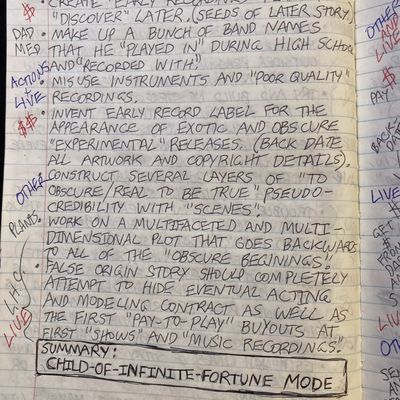 • CREATE "EARLY RECORDINGS"
$ "DISCOVER" LATER. (SEEDS OF LATER STORY)
DAD • MAKE UP A BUNCH OF BAND NAMES
MED THAT HE "PLAYED IN" DURING HIGH SCHOOL
AND "RECORDED WITH."
• MISUSE INSTRUMENTS AND "POOR QUALITY"
LIVE RECORDINGS.
$$ • INVENT EARLY RECORD LABEL FOR THE
APPEARANCE OF EXOTIC AND OBSCURE
"EXPERIMENTAL" RELEASES. (BACK DATE
ALL ARTWORK AND COPYRIGHT DETAILS).
OTHER CONSTRUCT SEVERAL LAYERS OF "TO
OBSCURE/REAL TO BE TRUE" PSEUDO-
CREDIBILITY WITH "SCENES".
PLANTS. WORK ON A MULTIFACETED AND MULTI-
DIMENSIONAL PLOT THAT GOES BACKWARDS
TO ALL OF THE "OBSCURE BEGININGS."
• FALSE ORIGIN STORY SHOULD COMPLETELY
ATTEMPT TO HIDE EVENTUAL ACTING
LIVE AND MODELING CONTRACT AS WELL AS
THE FIRST "PAY-TO-PLAY" BUYOUTS AT
FIRST "SHOWS" AND "MUSIC RECORDINGS."
SUMMARY:
CHILD-OF-INFINITE-FORTUNE MODE
OTHER
AND
LIVE
PAY
$
BACK-
DATE
LIVE
GET
$
FROM
DAD
$
LIVE